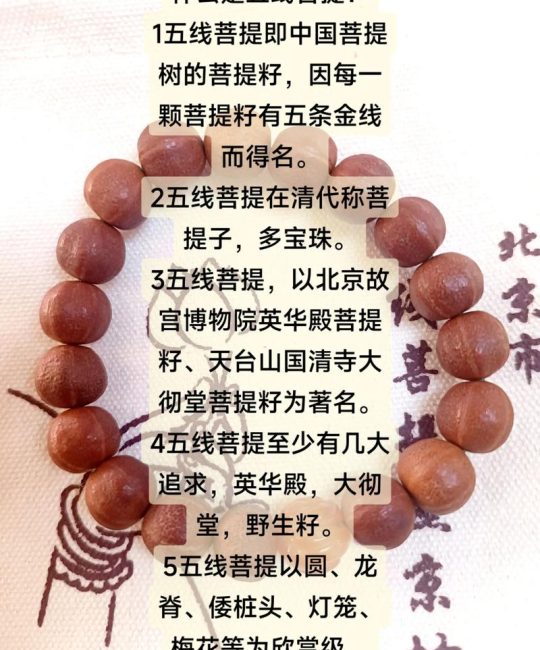 什么是五线菩提？
1五线菩提即中国菩提
树的菩提籽，因每一
颗菩提籽有五条金线
而得名。
2五线菩提在清代称菩
提子，多宝珠。
3五线菩提，以北京故
宫博物院英华殿菩提
籽、天台山国清寺大
彻堂菩提籽为著名。
4五线菩提至少有几大
追求，英华殿，大彻
堂，野生籽。
5五线菩提以圆、龙
脊、倭桩头、灯笼、
梅花等为欣赏级
北京市
菩提
京